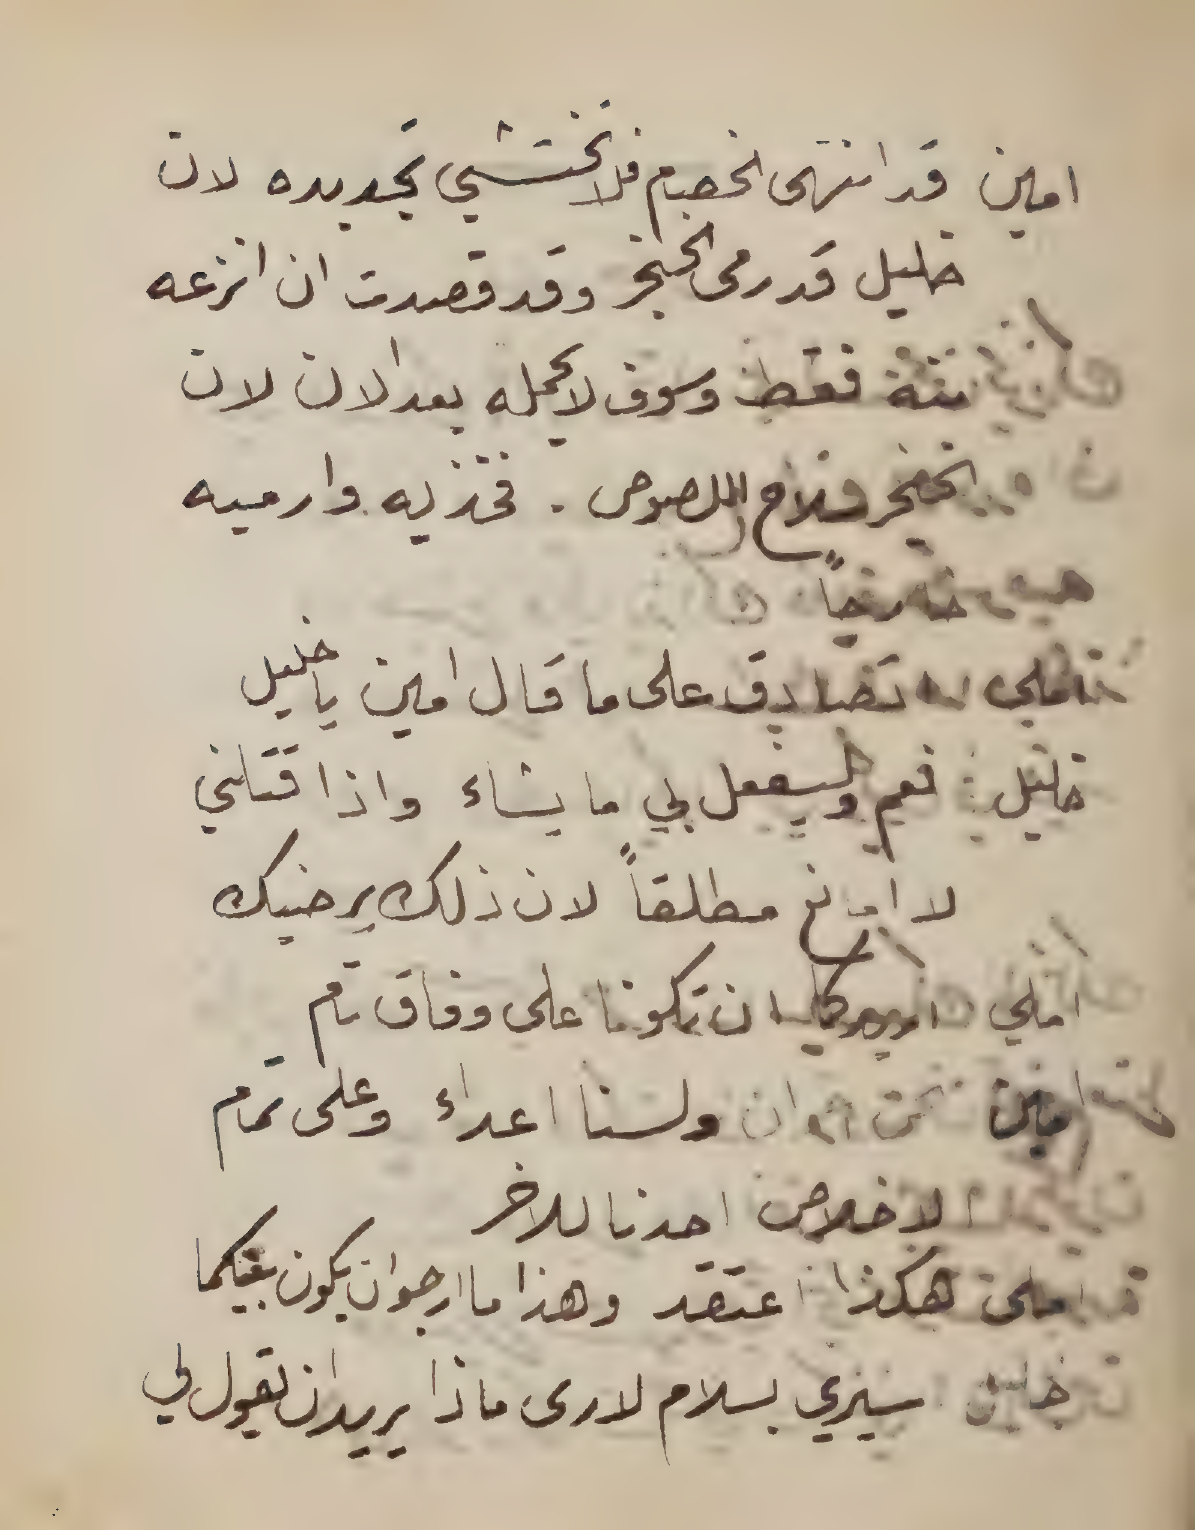 امين قد انتهى الخصام فلا تختشي تجديده لان
خليل قد رمى الخنجر وقد قصدت ان انزعه
منه فقط وسوف لا يحمله بعد الان لان
الخنجر سلاح اللصوص . فخذيه وارميه
خارجاً
املي تصادق على ما قال امين يا خليل
خليل : نعم وليفعل بي ما يشاء واذا قتلني
لا امانع مطلقاً لان ذلك يرضيك
املي اريدكما ان تكونا على وفاق تام
امين نحن اخوان ولسنا اعداء وعلى تمام
الاخلاص احدنا للاخر
املي هكذا اعتقد وهذا ما ارجو ان يكون بينكما
خليل سيري بسلام لارى ماذا يريد ان يقول لي